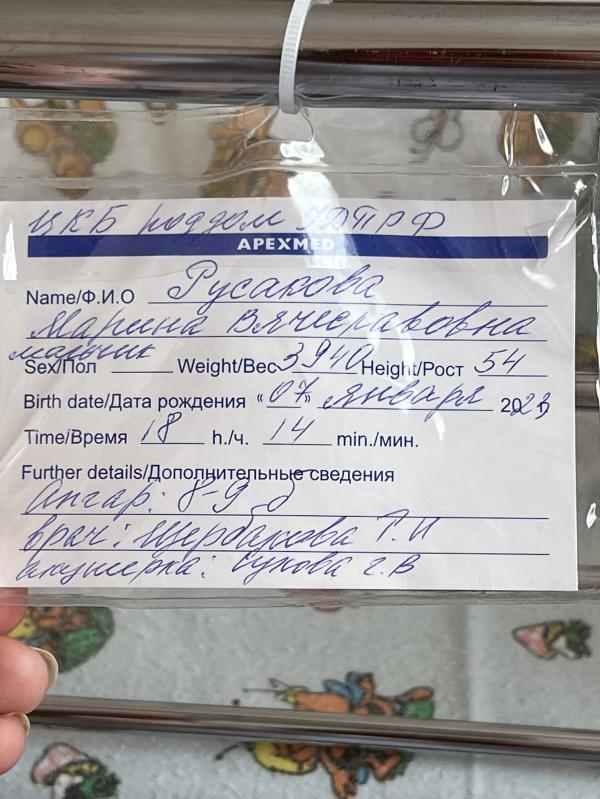 ЦКБ роддом УДП РФ
APEXMED
Name/Ф.И.О Русакова
Марина Вячеславовна
мальчик
Sex/Пол Weight/Вес 3940 Height/Рост 54
Birth date/Дата рождения «07» января 2023
Time/Время 18 h./ч. 14 min./мин.
Further details/Дополнительные сведения
Апгар: 8-9 б
врач: Щербакова Т. И
акушерка: Сукова Г. В